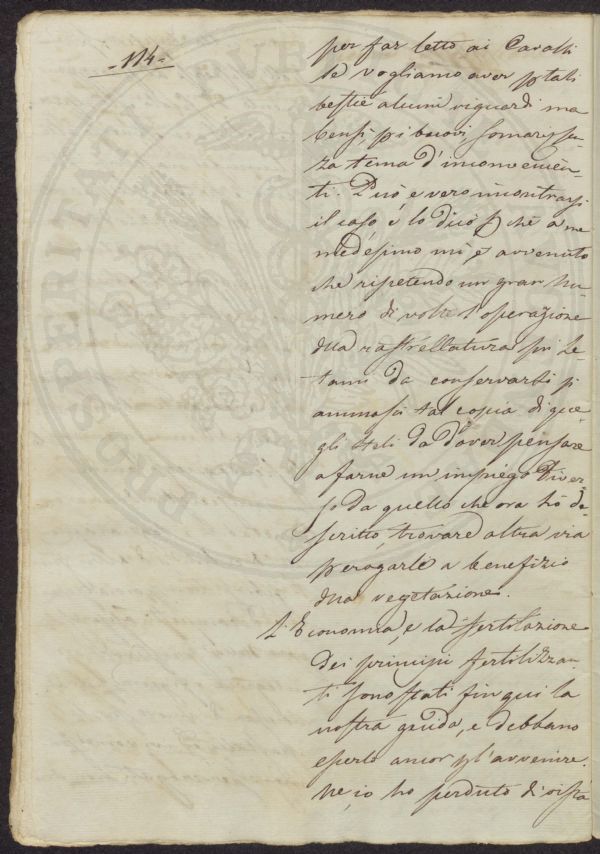 -114-
per far letto ai Cavalli
se vogliamo aver p tali
bestie alcuni riguardi ma
bensì, p i buoi, somari, sen-
za tema d'inconvenien-
ti. Può è vero incontrarsi
il caso, e lo dico p che a me
medesimo mi è avvenuto
che ripetendo un gran nu-
mero di volte l'operazione
della rastrellatura pei le-
tami da conservarsi si
ammassi tal copia di que-
gli steli da dover pensare
a farne un impiego diver
so da quello che ora hò de-
scritto, trovare altra via
p erogarli a benefizio
della vegetazione.
L'Economia, e la fertilazione
dei principj fertilizzan-
ti sono stati fin qui la
nostra guida, e debbano
esserlo ancor p l'avvenire.
Ne, io ho perduto di vista
PROSPERITATI PUB